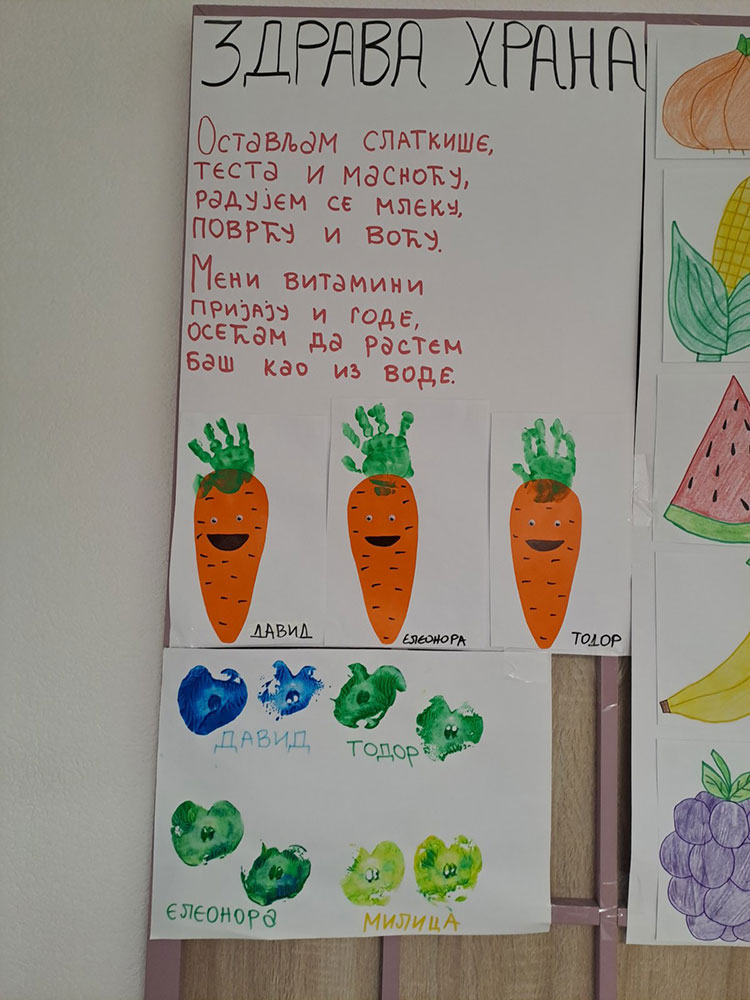 ЗДРАВА ХРАНА
Остављам слаткише,
теста и масноћу,
радујем се млеку,
поврћу и воћу.
Мени витамини
пријају и годе,
осећам да растем
баш као из воде.
ДАВИД
ЕЛЕОНОРА
ТОДОР
ДАВИД
ТОДОР
ЕЛЕОНОРА
МИЛИЦА